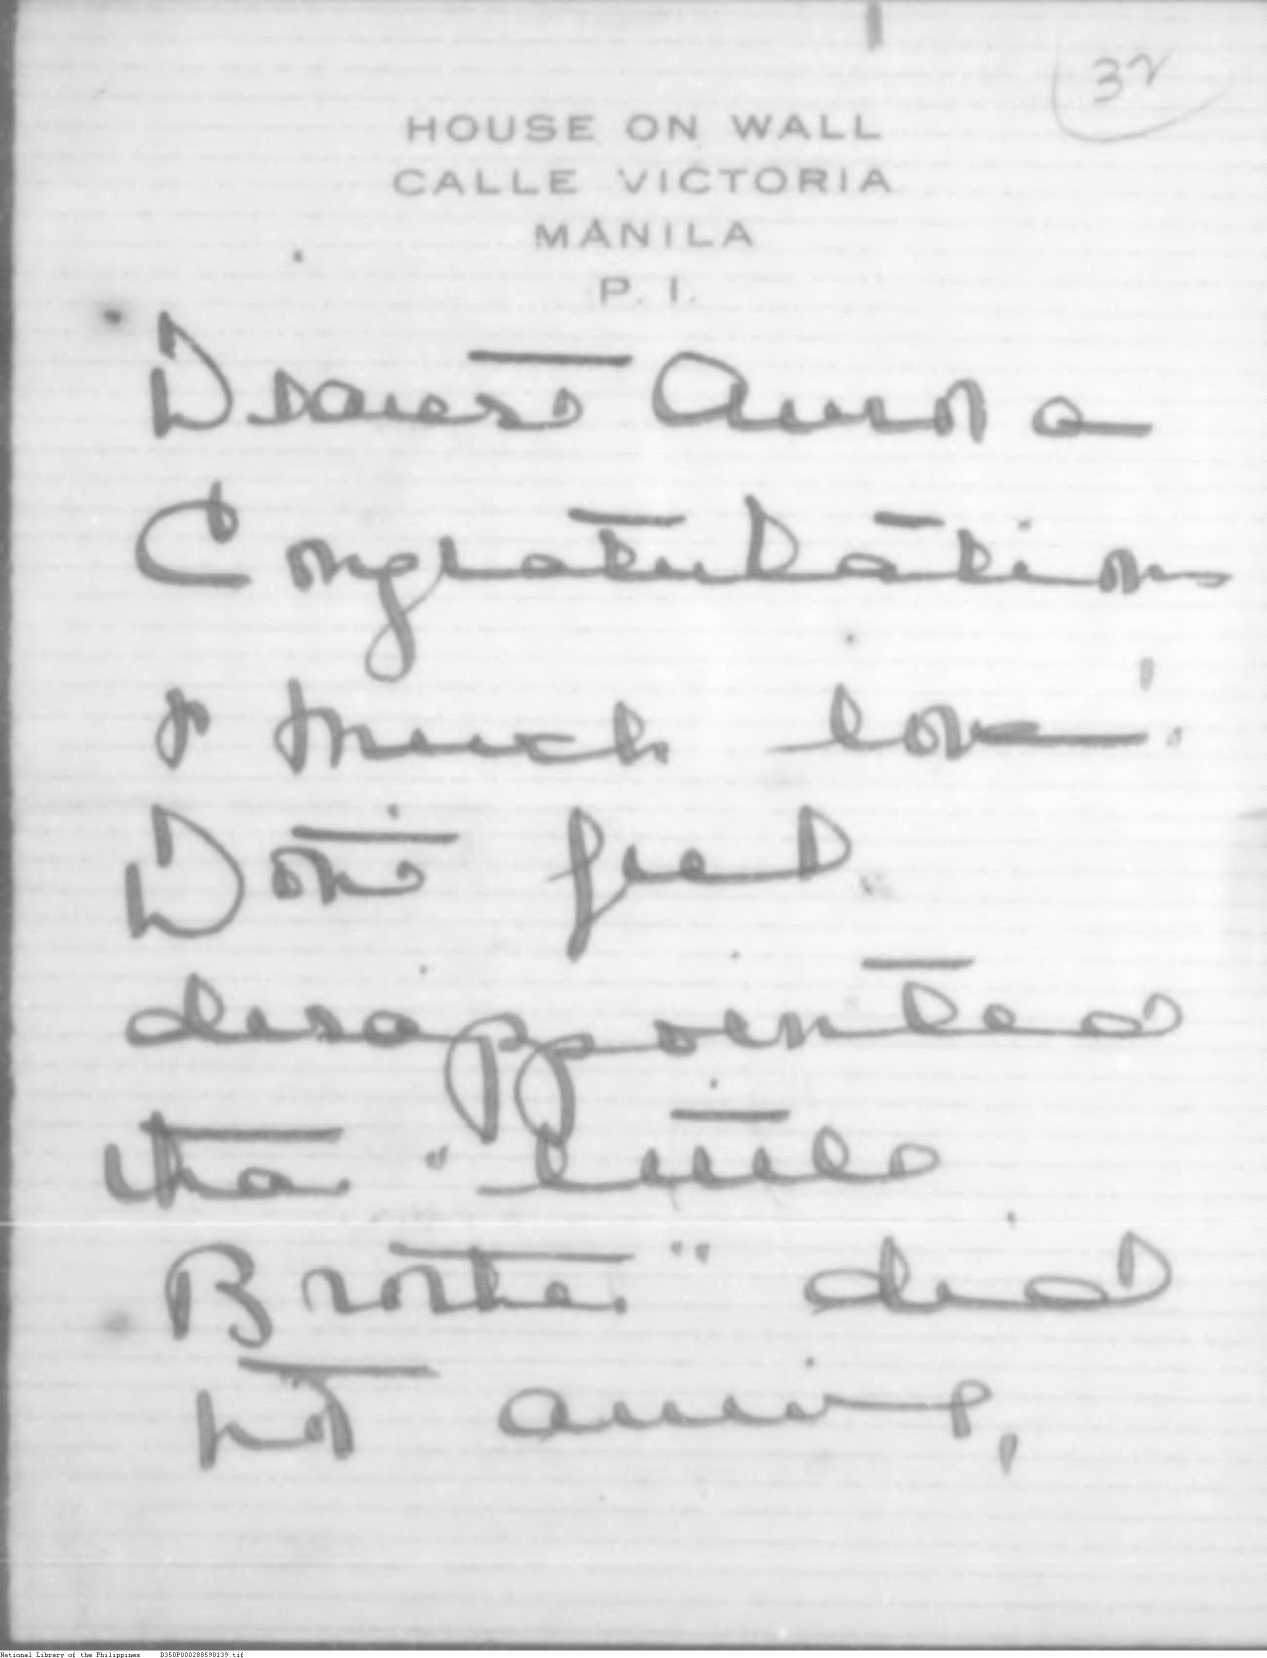 32
HOUSE ON WALL
CALLE VICTORIA
MANILA
P. I.
Dearest Aurora
Congratulations
& much love!
Don't feel
disappointed
tha "little
Brother" did
not arrive,
National Library of the Philippines D350P0002088598139.tif